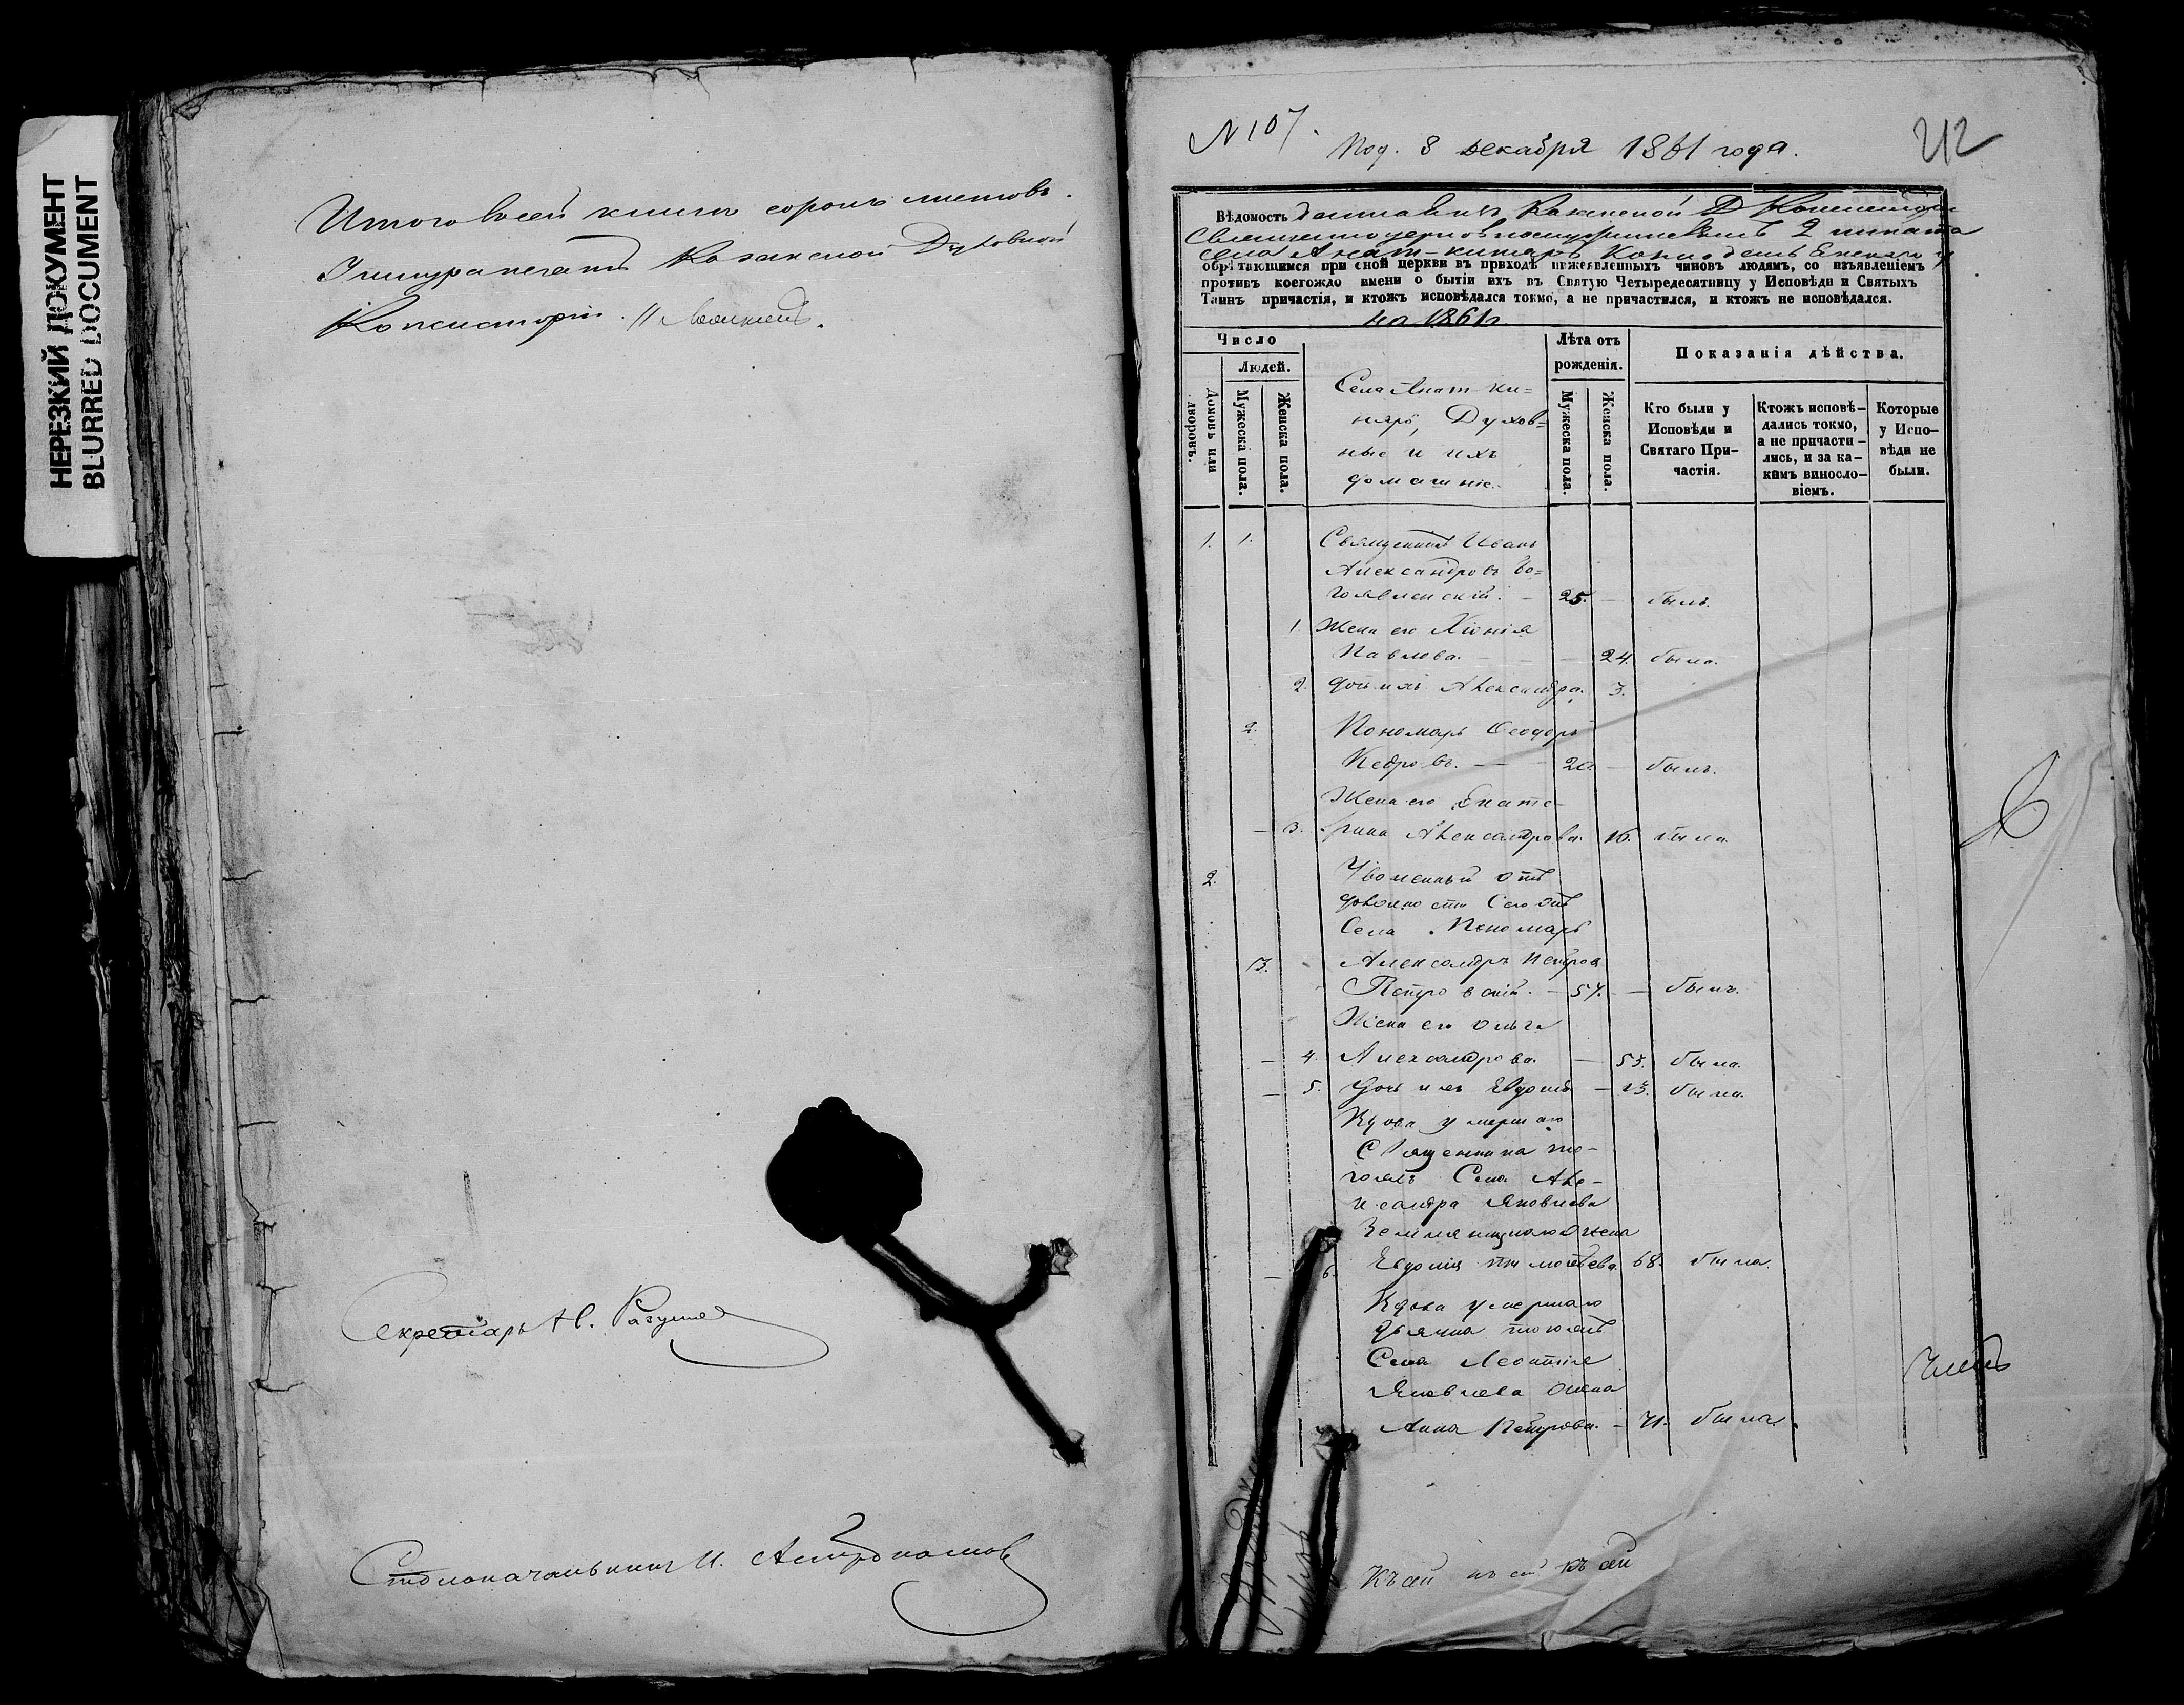 НЕРЕЗКИЙ ДОКУМЕНТ
BLURRED DOCUMENT
Итого всей книги сорокъ листовъ.
Консисторіи.
Казанской Духовной
Секретарь
Столоначальникъ И.
N 107.
Под. 8 декабря 1861 года.
212
Вѣдомость Казанской Д
2 штата
села
обрѣтающимся при сной церкви въ приходѣ нижеявленныхъ чиновъ людямъ, со изъявленіемъ
противъ коегождо имени о бытіи ихъ въ Святую Четыредесятницу у Исповѣди и Святыхъ
Таинъ причастія, и ктожъ исповѣдался токмо, а не причастился, и ктожъ не исповѣдался.
на 1861 г.
Число
Людей.
Домовъ или дворовъ.
Мужеска пола.
Женска пола.
Села Анат-ки-
няръ, Духов-
ные и ихъ
домашніе.
Лѣта отъ
рожденія.
Мужеска пола.
Женска пола.
Показанія дѣйства.
Кто были у
Исповѣди и
Святаго При-
частія.
Ктожъ исповѣ-
дались токмо,
а не причасти-
лись, и за ка-
кимъ винословіемъ.
Которые
у Испо-
вѣди не
были.
1. 1. Священникъ Иванъ
Александровъ Бо-
гоявленскій. 25. былъ.
1. Жена его Хіонія
Павлова. 24. была.
2. дочь ихъ Александра. 3.
2. Пономарь Ѳеодоръ
Кедровъ. былъ.
Жена его Екате-
3. рина Александрова. 16. была.
2. Уволенный отъ
должности сего
Села Пономарь
3. Александръ Петровъ
Петровскій. 57. былъ.
Жена его Ольга
4. Александрова. 53. была.
5. Дочь ихъ Евдокія 23. была.
Вдова умершаго
Священника то-
гожъ Села Але-
ксандра Яковлева
жена
6. Евдокія Тимоѳеева. 68. была.
Вдова умершаго
Дьячка тогожъ
Села Леонтія
Яковлева жена
Анна Петрова. 71. была.